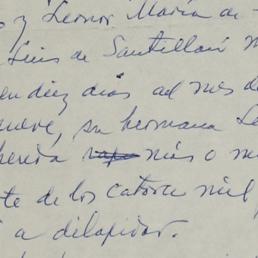 y Leonor María de
Luis de Santillán
en diez días del mes de
nueve, su hermana
más o
te de los catorce mil
a dilapidar.